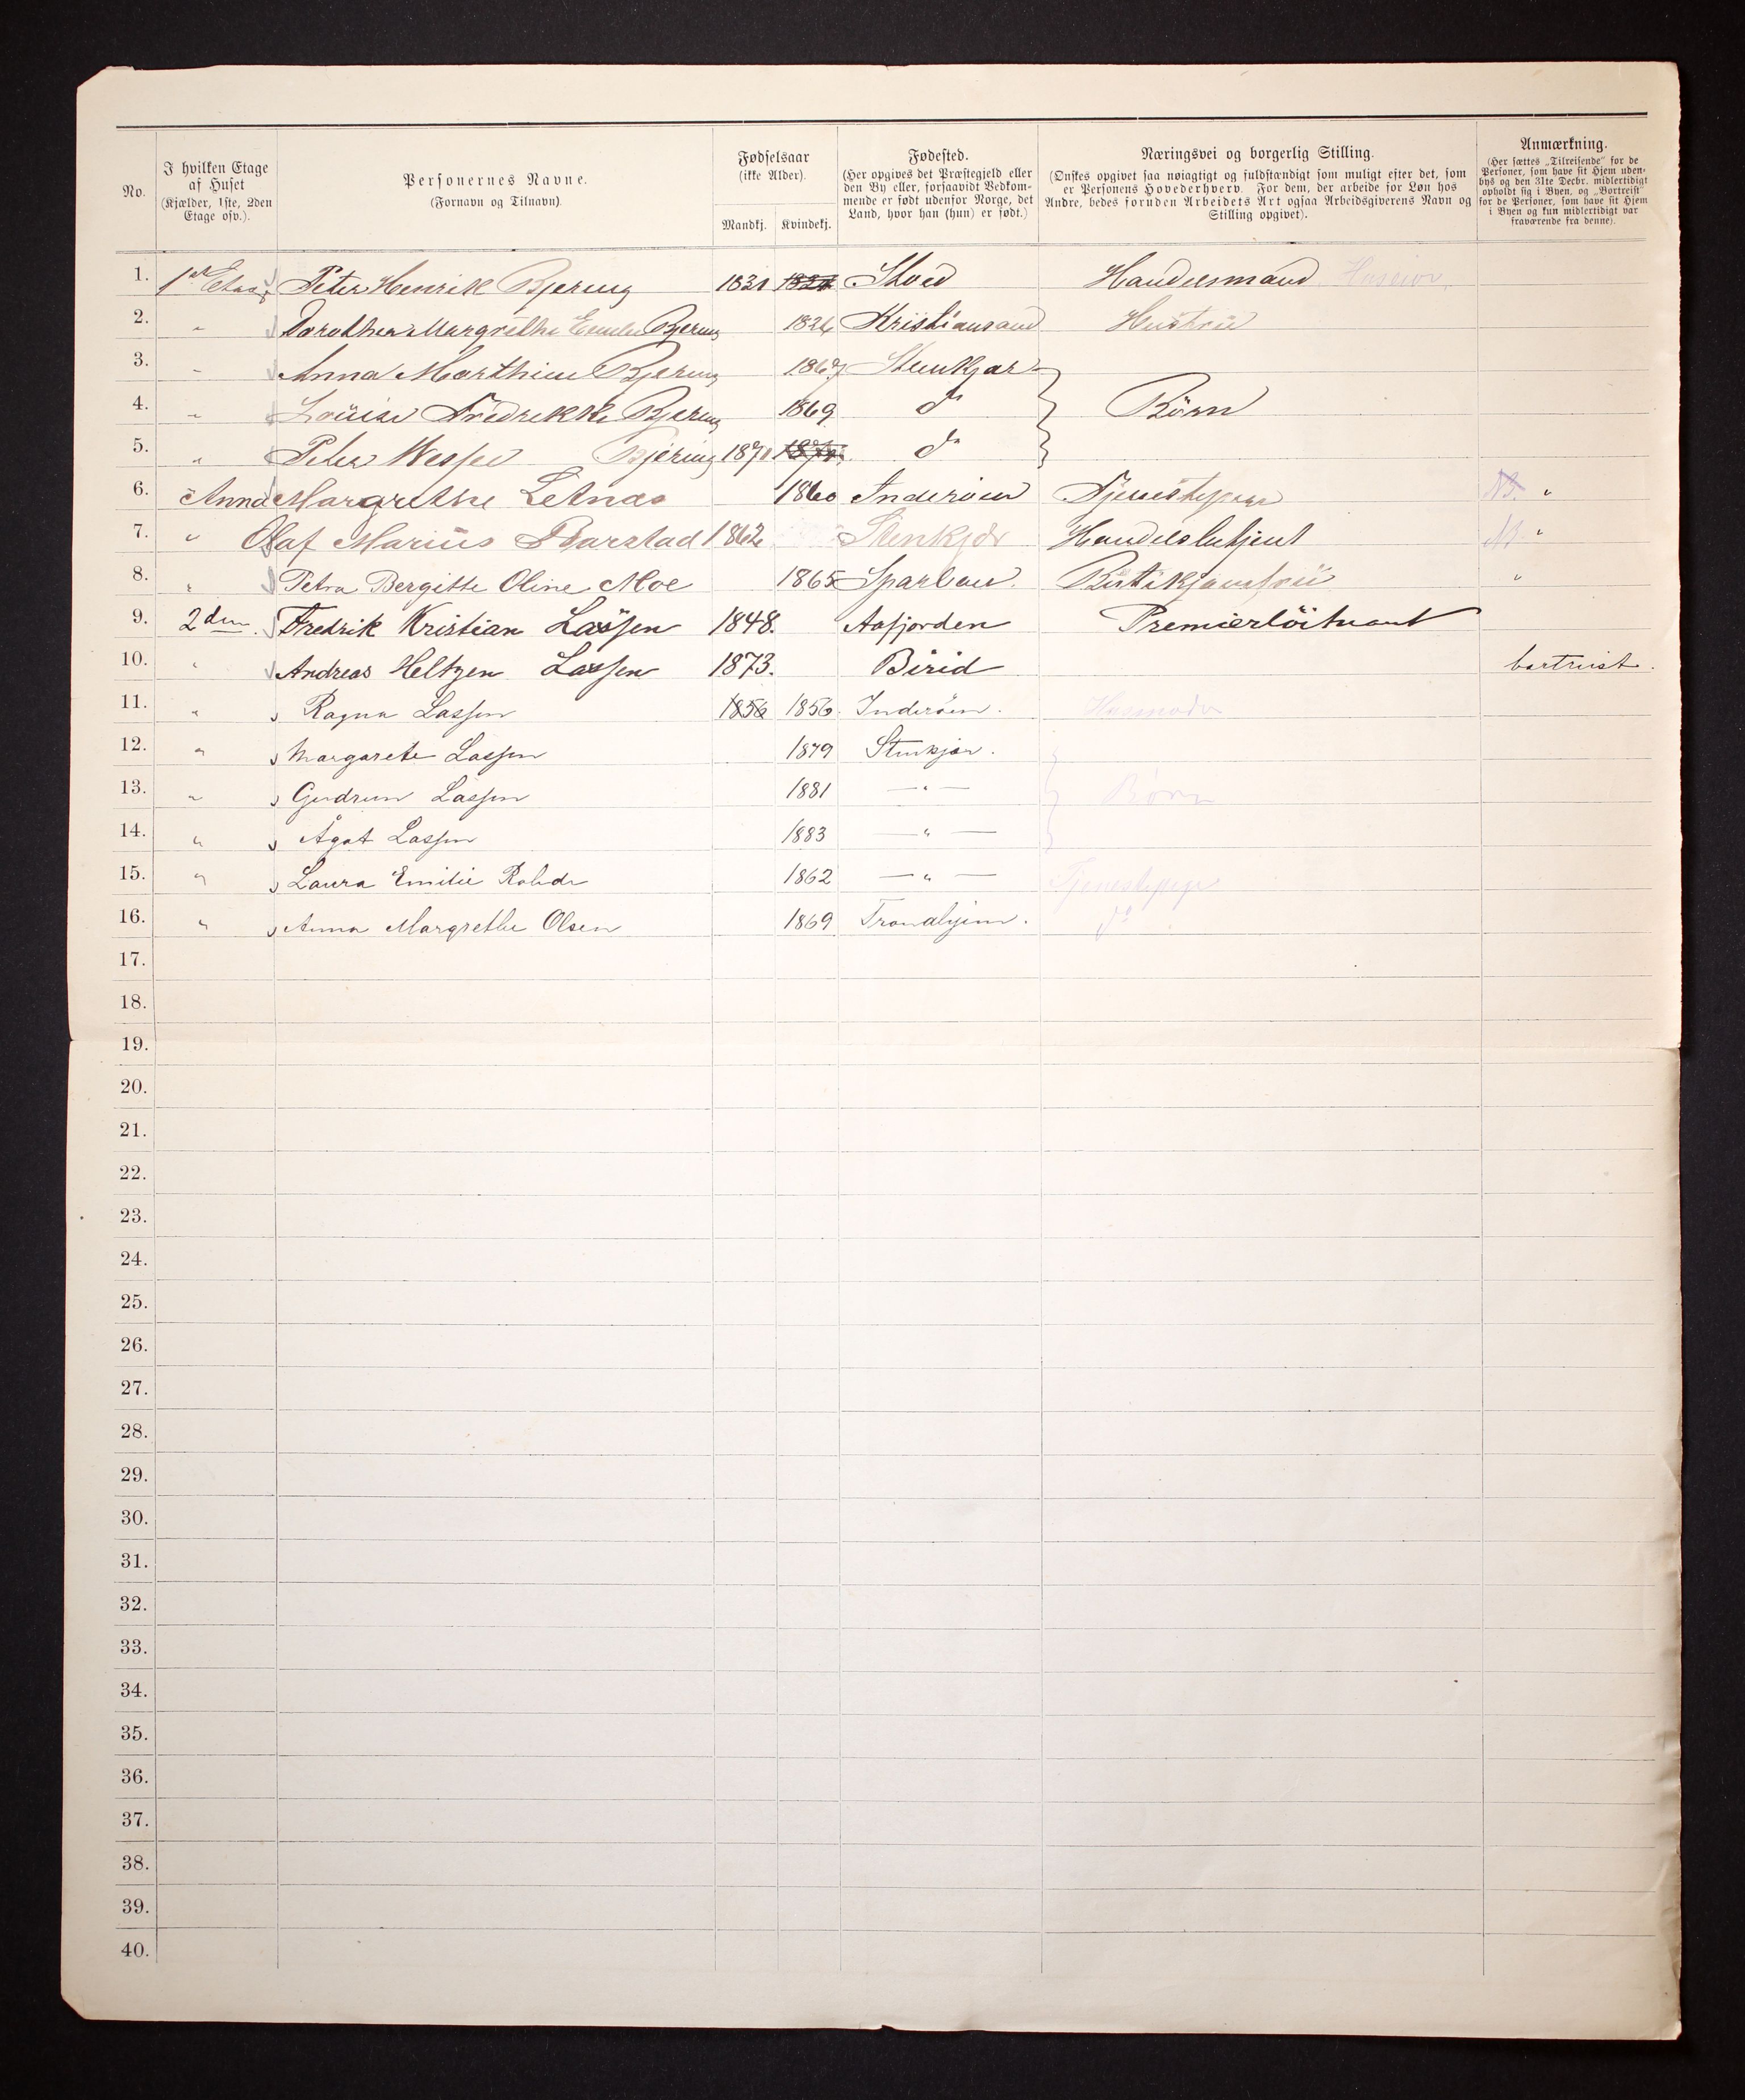 No.
I hvilken Etage af Huset (Kjælder, 1ste, 2den Etage osv.).
Personernes Navne. (Fornavn og Tilnavn).
Fødselsaar (ikke Alder).
Mandkj. Kvindekj.
Fødested. (Her opgives det Præstegjeld eller den By eller, forsaavidt Vedkommende er født udenfor Norge, det Land, hvor han (hun) er født.)
Næringsvei og borgerlig Stilling. (Ønskes opgivet saa nøiagtigt og fuldstændigt som muligt efter det, som er Personens Hovederhverv. For dem, der arbeide for Løn hos Andre, bedes foruden Arbeidets Art ogsaa Arbeidsgiverens Navn og Stilling opgivet).
Anmærkning. (Her sættes „Tilreisende“ for de Personer, som have sit Hjem udenbys og den 31te Decbr. midlertidigt opholdt sig i Byen, og „Bortreist“ for de Personer, som have sit Hjem i Byen og kun midlertidigt var fraværende fra denne).
1. 1st Etag. Peter Henrik Bjering 1831 Stod Handelsmand Huseier
2. " Dorothea Margrethe Bjering 1826 Kristiansand Hustrü
3. " Anna Marthine Bjering 1867 Stenkjær
4. " Loüise Fredrikke Bjering 1869 do Börn
5. " Peter Wessel Bjering 1871 do
6. Anna Margrethe Letnæs 1860 Inderöen Tjenestepige NB. "
7. " Olaf Mariüs Baarstad 1862 Stenkjær Handelsbetjent NB "
8. " Petra Bergitte Oline Moe 1865 Sparbuen. Butikjomfrü "
9. 2den Fredrik Kristian Lassen 1848. Aafjorden Premierlöitnant
10. " Andreas Heltzen Lassen 1873. Birid bortreist.
11. " Ragna Lassen 1856 1856. Inderöen. Husmoder
12. " Margarete Lassen 1879 Stenkjær.
13. " Gudrun Lassen 1881 — " — Børn
14. " Ågot Lassen 1883 — " —
15. " Laura Emilie Rohde 1862 — " — Tjenestepige
16. " Anna Margrethe Olsen 1869 Trondhjem. do
17.
18.
19.
20.
21.
22.
23.
24.
25.
26.
27.
28.
29.
30.
31.
32.
33.
34.
35.
36.
37.
38.
39.
40.